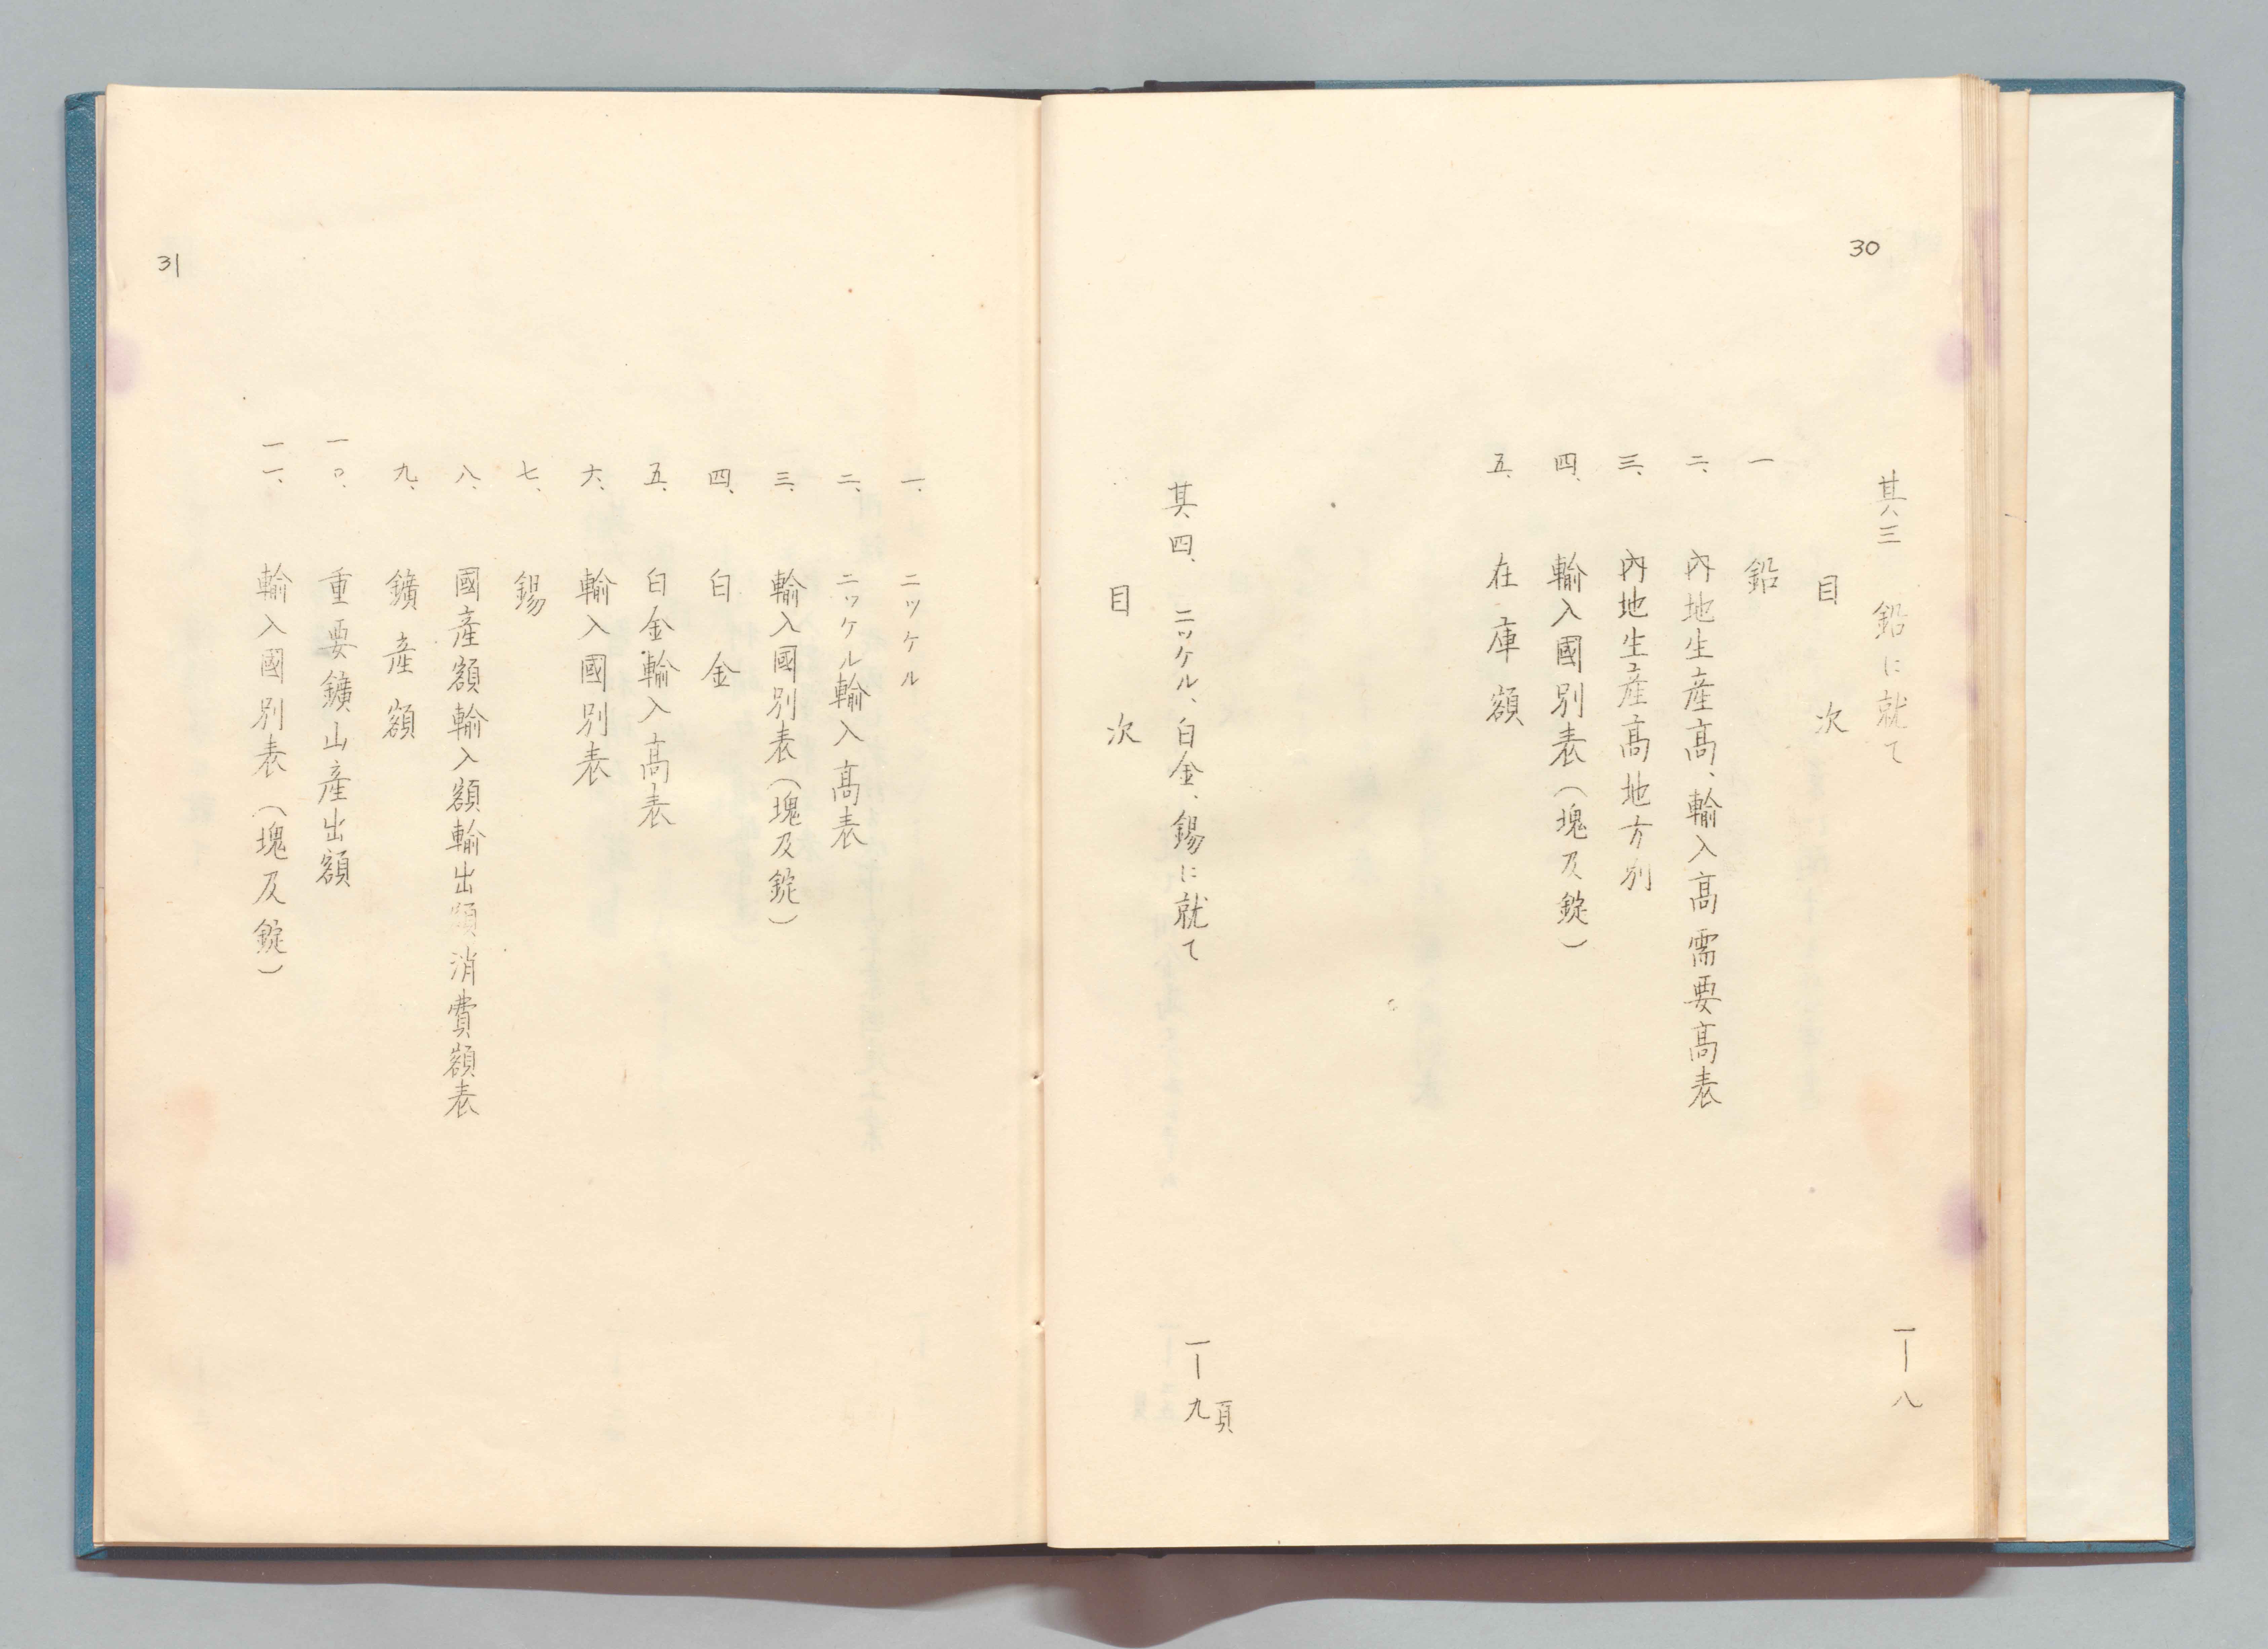 30
其三 鉛に就て 一―八
目次
一 鉛
二、內地生産高、輸入高需要高表
三、內地生産高地方別
四、輸入國別表(塊及錠)
五、在庫額
其四、ニッケル、白金、錫に就て 一―九頁
目次
31
一、ニツケル
二、ニッケル輸入高表
三、輸入國別表(塊及錠)
四、白金
五、白金輸入高表
六、輸入國別表
七、錫
八、國產額輸入額輸出額消費額表
九、鑛産額
一〇、重要鑛山産出額
一一、輸入國別表(塊及錠)